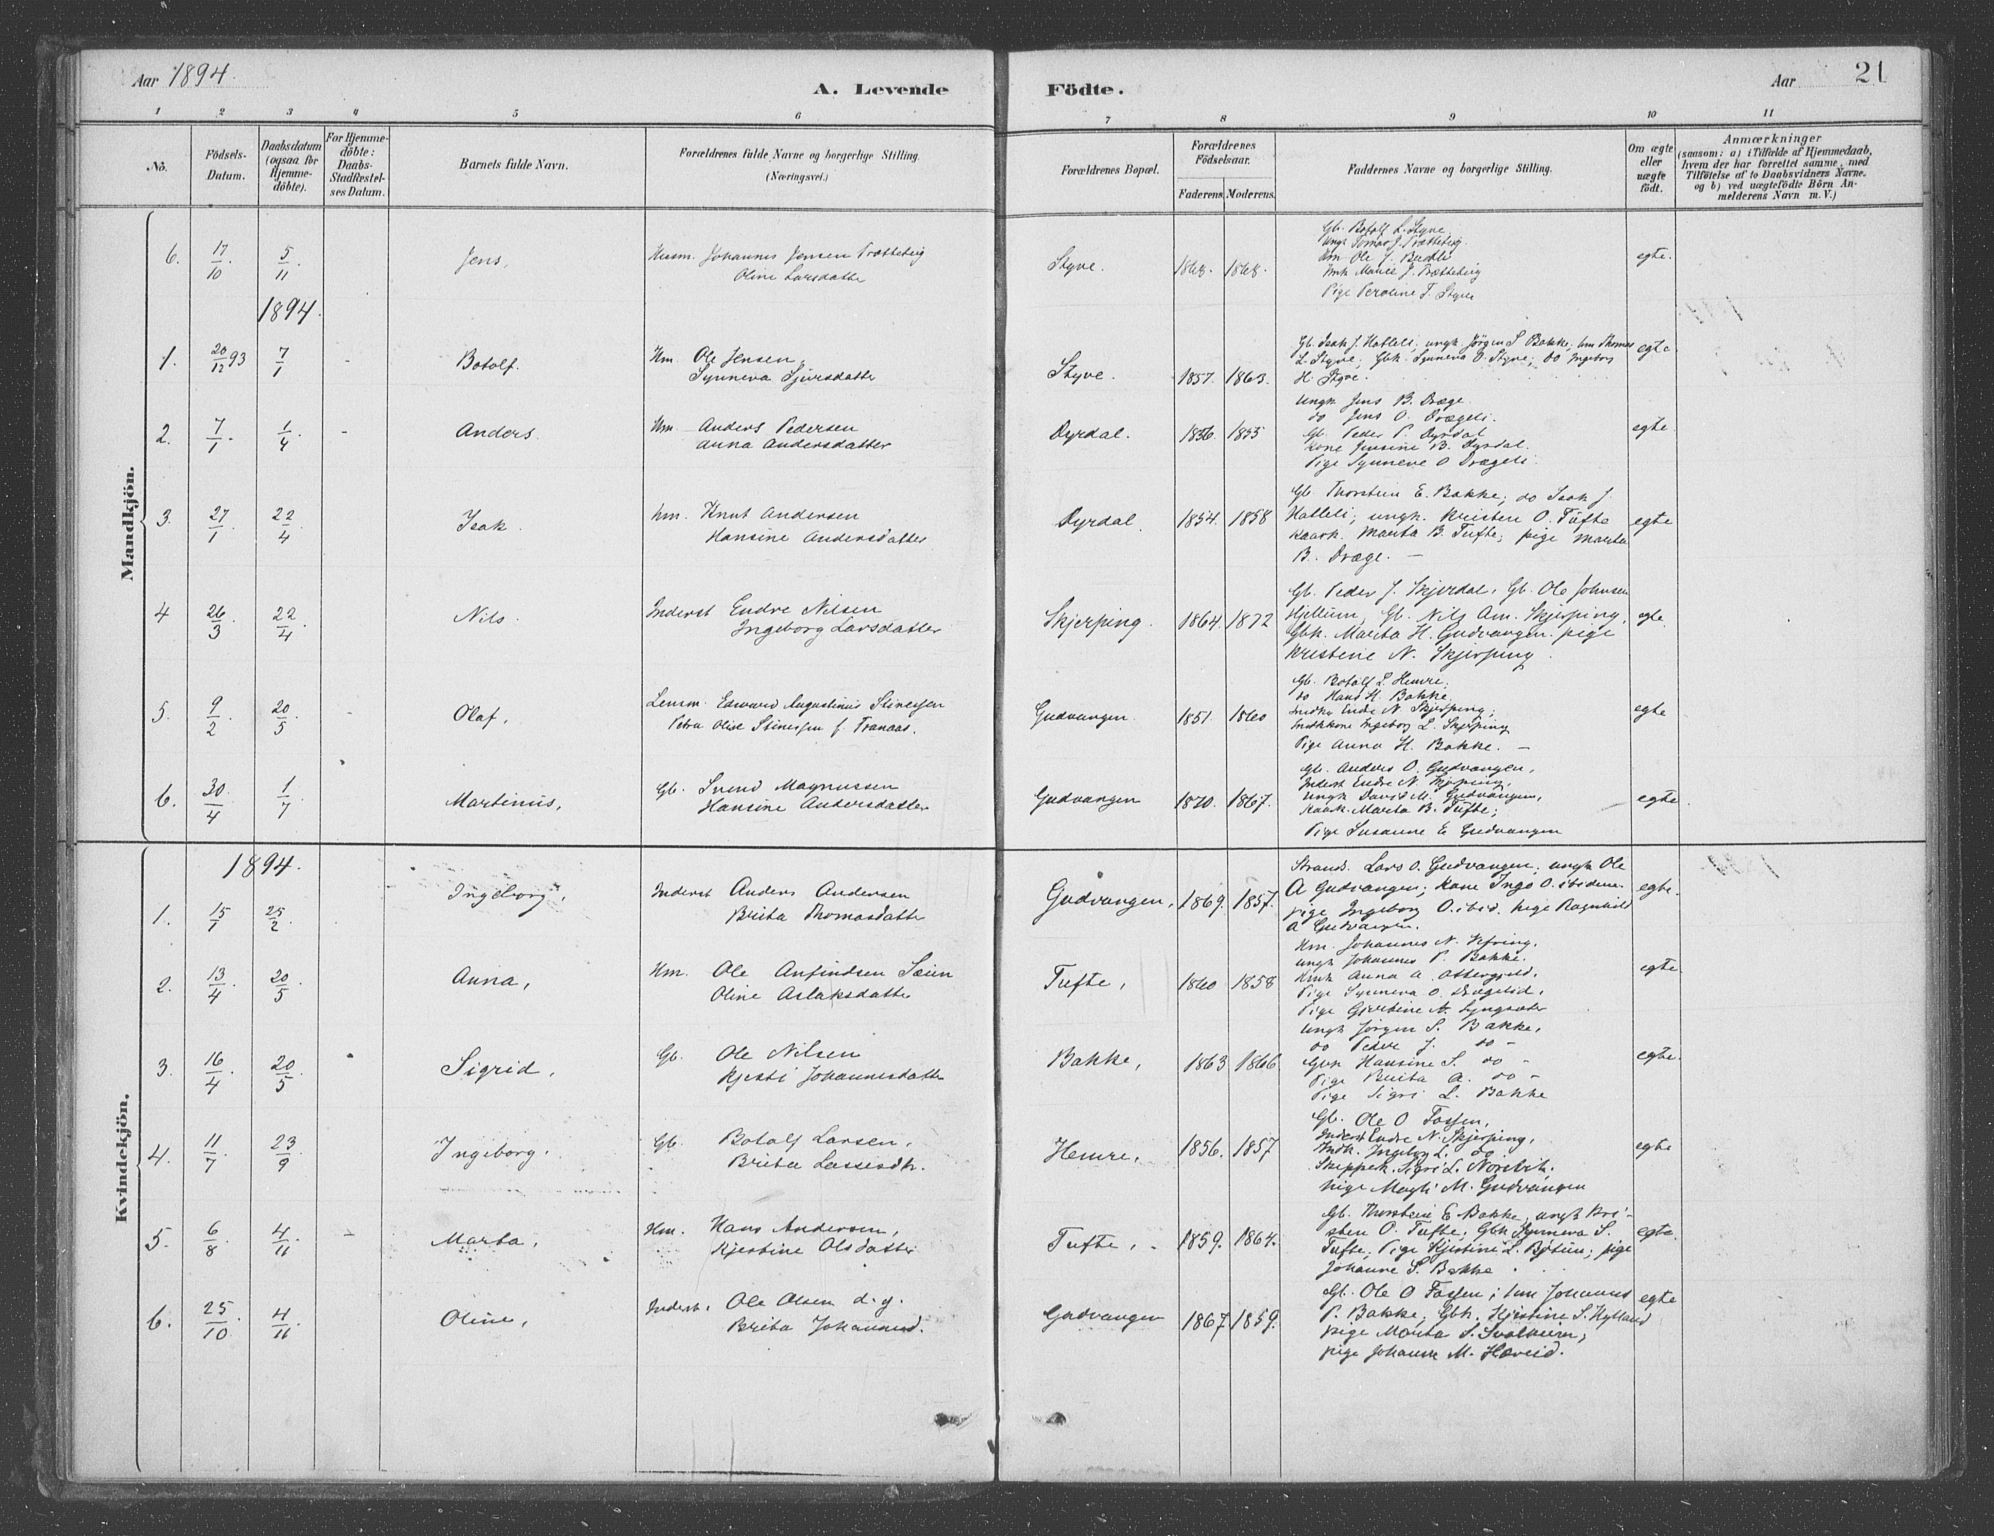 Aar 1894.
A. Levende Födte.
Aar
21
1 2 3 4 5 6 7 8 9 10 11
No.
Födsels-Datum.
Daabsdatum (ogsaa for Hjemme-döbte).
For Hjemme-döbte: Daabs-Stadfæstelses Datum.
Barnets fulde Navn.
Forældrenes fulde Navne og borgerlige Stilling.
(Næringsvei.)
Forældrenes Bopæl.
Forældrenes Födselsaar.
Faderens. Moderens.
Faddernes Navne og borgerlige Stilling.
Om ægte eller uægte födt.
Anmærkninger
(saasom: a) i Tilfælde af Hjemmedaab, hvem der har forrettet samme, med Tilföielse af to Daabsvidners Navne. og b) ved uægtefödte Börn Anmelderens Navn m. V.)
Mandkjön.
6. 17/10 5/11 Jens. Husm. Johannes Jensen Trætteteig
Oline Larsdatter
Styve. 1868. 1868.
Gb. Botolf L. Styve
Hm. Ole J.
Pige Peroline T. Styve
egte.
1894.
1. 20/12 93 7/1 - Botolf. Hm. Ole Jensen,
Synneva Sjursdatter
Styve. 1857. 1863.
Gb. Isak J. Halleli, ungk. Jörgen S Bakke, hm Thomas
L. Styve, Gbk. Synneva O. Styve, do Ingeborg
H. Styve.
egte.
2. 7/1. 1/4 - Anders. Hm. Anders Pedersen
Anna Andersdatter
Dyrdal. 1856. 1855
Ungk Jens B. Dræge.
do Jens O. Drægeli.
Gb. Peder P. Dyrdal
Kone Jensine B. Dyrdal.
Pige Synneve O Drægeli.
egte
3. 27/1 22/4 Isak. hm. Knut Andersen
Hansine Andersdatter
Dyrdal 1854. 1858
Gb. Thorstein E. Bakke; do Isak J.
Halleli; ungk. Kristen O. Tufte
kaark. Marita B. Tufte; pige Marita
B. Dræge. —
egte
4 26/3 22/4 Nils. Inderst Endre Nilsen
Ingeborg Larsdatter
Skjerping. 1864. 1872
Gb. Peder J. Skjerdal, Gb. Ole Johnsen
Hyllum, Gb. Nils Am. Skjerping,
Gbk. Marita H. Gudvangen. pige
Kristine N. Skjerping.
egte.
5. 9/2 20/5 Olaf. Lensm. Edvard Augustinus Stinessen
Petra Olise Stinessen f. Tranaas.
Gudvangen. 1851. 1860
Gb. Botolf L. Hemre.
do Hans H. Bakke
Endre N Skjerping;
Ingeborg L. Skjerping
Pige Anna H. Bakke. —
egte
6. 30/4 1/7 Martinus, Gb. Svend Magnussen
Hansine Andersdatter
Gudvangen 1870. 1867.
Gb. Anders O. Gudvangen,
Inderst Endre N. Skjerping,
ungk David M. Gudvangen,
kaark. Marita B. Tufte;
Pige Susanne E Gudvangen
egte
Kvindekjön.
1894.
1. 15/1 25/2 Ingeborg. Inderst Anders Andersen
Brita Thomasdatter
Gudvangen, 1869. 1857.
Strands. Lars O. Gudvangen; ungk Ole
A Gudvangen; kone Inga O. ibidem.
pige Ingeborg O. ibid. pige Ragnhild
A Gudvangen.
egte.
2. 13/4. 20/5 Anna, Hm. Ole Anfindsen Sæim
Oline Aslaksdatter
Tufte, 1860 1858
Hm. Johannes N.
ungk Johannes P. Bakke.
Anna A.
Pige Synneva O. Drægelid,
Pige Gjertine A.
egte
3. 16/4 20/5 Sigrid, Gb. Ole Nilsen
Kjesti Johannesdatter
Bakke, 1863 1866
ungk Jörgen S. Bakke,
do Peder J. do -
Gbk Hansine S. do -
Pige Brita A. do -
Pige Sigri L. Bakke
egte.
4. 11/7 23/9 Ingeborg. Gb. Botolf Larsen,
Brita Lassesdtr.
Hemre, 1856. 1857
Gb. Ole O Fossen,
Inderst Endre N. Skjerping,
Indk. Ingeborg L. do
Skippek. Sigri L. Norevik.
pige Magli M. Gudvangen
egte
5. 6/8 4/11 - Marta, Hm. Hans Andersen,
Kjerstine Olsdatter
Tufte, 1859. 1864.
Gb. Thorstein E Bakke, ungk Kri-
sten O. Tufte; Gbk Synneva S.
Tufte; Pige Kjerstine L. Bötun; pige
Johanne S. Bakke
egte.
6. 25/10 4/11 Oline, Inderst. Ole Olsen d. y.
Brita Johannesd.
Gudvangen 1867. 1859.
Gb. Ole O Fossen; hm Johannes
P. Bakke; Gbk. Kjerstine S. Hylland
pige Marita S. Svalheim;
pige Johanne M. Hæreid.
egte